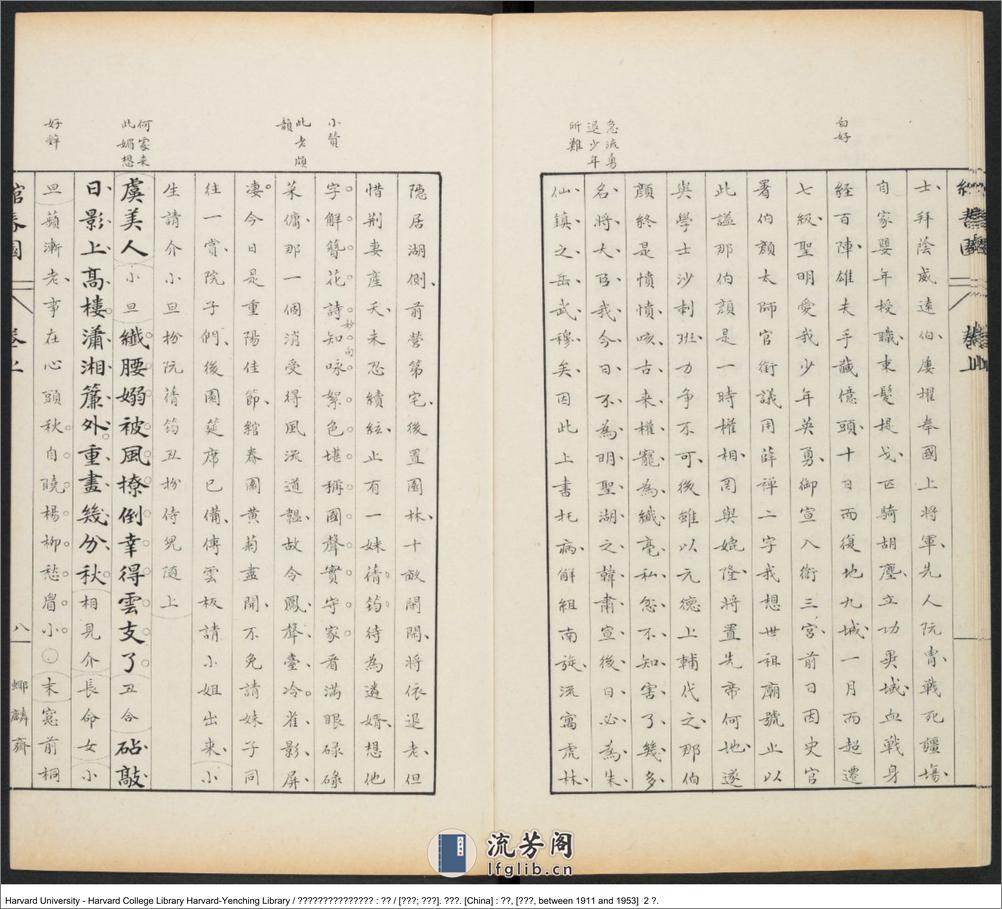 白好
急流勇
退少年
所難
士、拜陰威遠伯、屢擢奉國上將軍、先人阮胄、戰死疆場、
自家嬰年授職、束髮提戈、匹騎胡塵、立功異域、血戰身
經百陣、雄夫手馘億頭、十日而復地九城、一月而超遷
七級、聖明愛我少年英勇、御宣入衛三宮、前日因史官
署伯顏太師官銜、議用薛禪二字、我想世祖廟號止以
此諡、那伯顏是一時權相、罔與媲隆、將置先帝何地、遂
與學士沙剌班力爭不可、後雖以元德上輔代之、那伯
顏終是憤憤、咳、古來權寵、為纖毫私忿、不知害了幾多
名將大臣、我今日不為明聖湖之韓肅宣、後日必為朱
仙鎮之岳武穆矣、因此上書托病、解組南旋、流寓虎林、
小贊
此老頗
韻
何家來
此媚想
好鋒
隱居湖側、前營第宅、後置園林、十畝閒閒、將依退老、但
惜荆妻產夭、未忍續絃、止有一妹蒨筠、待為遴婿、想他
字解簪花、詩知咏絮、色堪稱國、聲實守家、看滿眼碌碌
妙句
菜傭、那一個消受得風流道韞、故今鳳聲臺冷、雀影屏
凄、今日是重陽佳節、綰春園黃菊盡開、不免請妹子同
往一賞、院子們、後園筵席已備、傳雲板請小姐出來、小
生請介小旦扮阮蒨筠丑扮侍兒隨上
虞美人小旦纖腰嫋被風撩倒幸得雲支了丑合砧敲
日影上高樓瀟湘簾外重畫幾分秋相見介長命女小
旦蘋漸老、事在心頭秋自曉、楊柳愁眉小。末窓前桐
綰春園
卷上
八
蝉麟齋
流芳阁
lfglib.cn
Harvard University - Harvard College Library Harvard-Yenching Library / ??????????????? : ?? / [???; ???]. ???. [China] : ??, [???, between 1911 and 1953] 2 ?.